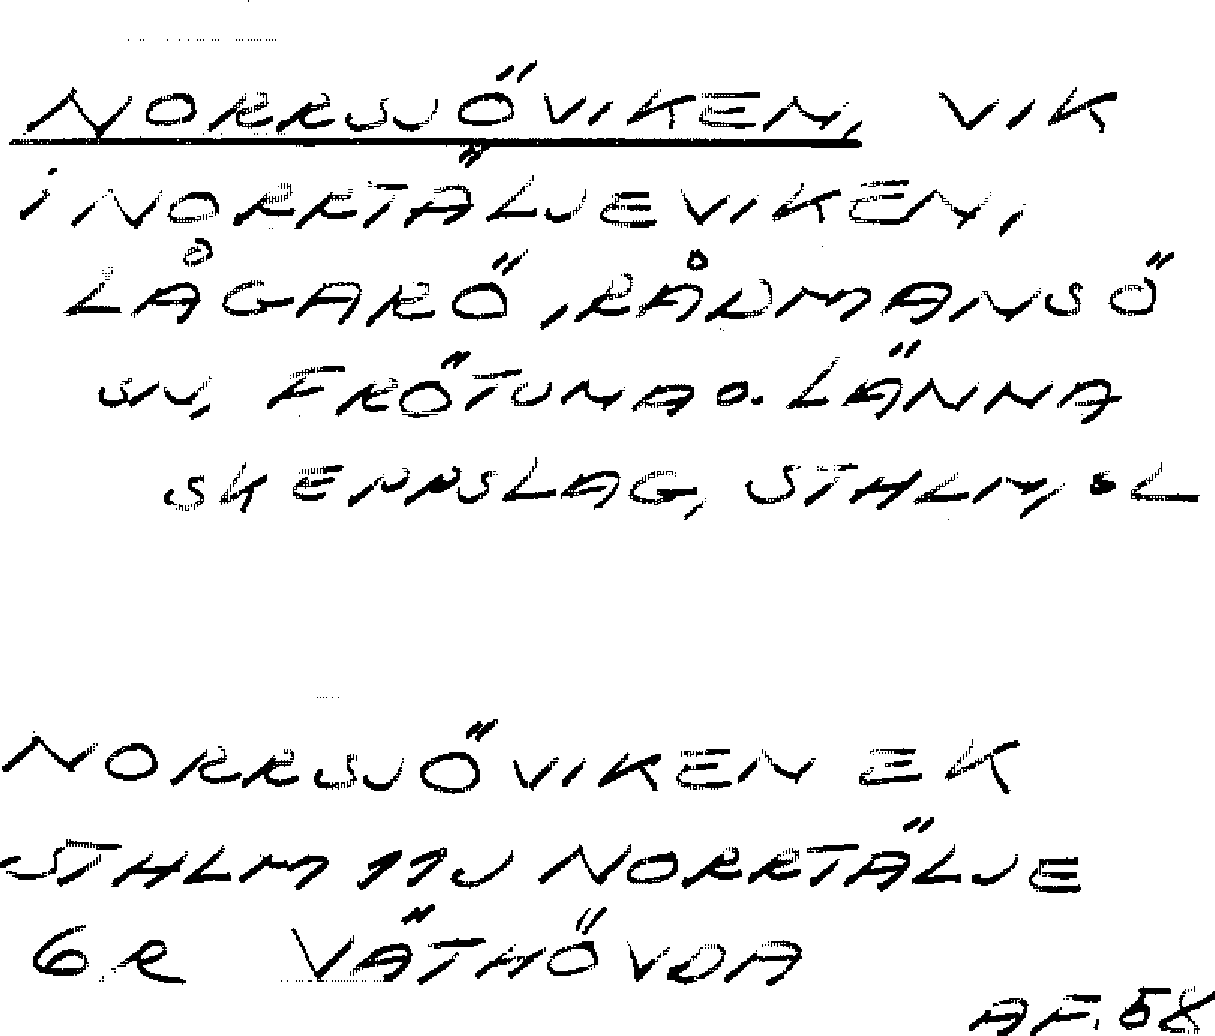 NORRSJÖVIKEN, VIK
i NORRTÄLJEVIKEN,
LÅGARÖ, RÅDMANSÖ
SN, FRÖTUNA O. LÄNNA
SKEPPSLAG, STHLM,S L
NORRSJÖVIKEN EK
STHLM 11J NORRTÄLJE
GR VÄTHÖVDA
AF. 58